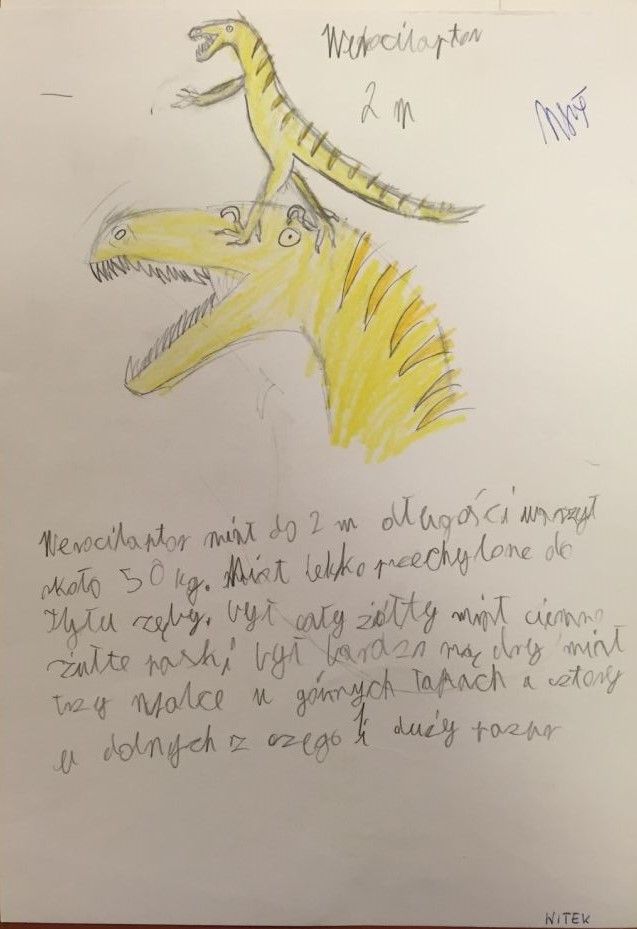 Werociloptor
2 m
Werocilaptor miał do 2 m długości i warzył
około 50 kg. Miał lekko przechylone do
tyłu zęby. był cały żółty miał ciemno
żułte paski był bardzo mądry miał
trzy palce u górnych łapach a cztery
u dolnych z czego 1 duży pazur
WITEK